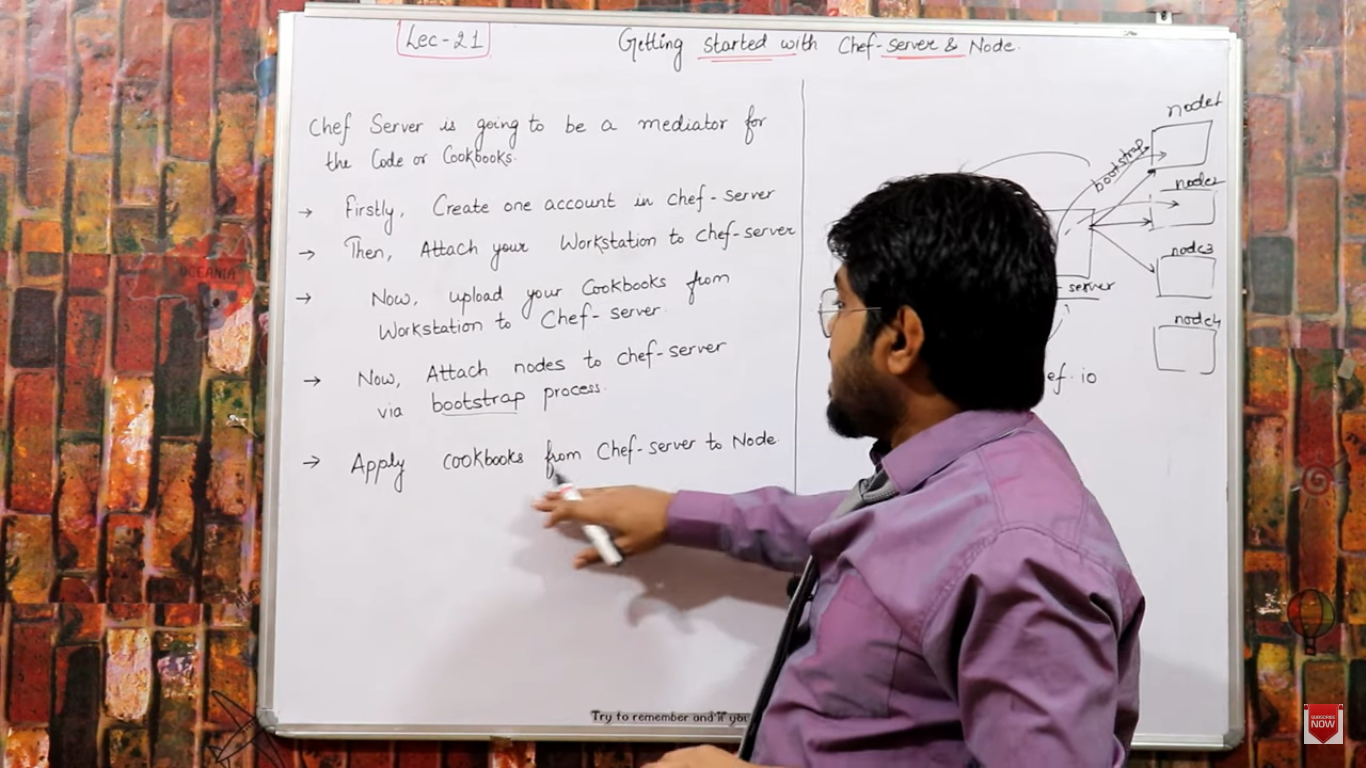 Lec-21
Getting started with Chef-server & Node.
Chef Server is going to be a mediator for
the Code or Cookbooks.
→ Firstly, Create one account in Chef-server
→ Then, Attach your Workstation to Chef-server
→ Now, upload your Cookbooks from
Workstation to Chef-server.
→ Now, Attach nodes to Chef-server
via bootstrap process.
→ Apply cookbooks from Chef-server to Node
node1
bootstrap
node2
node3
-server
node4
ef.io
OCEANIA
Try to remember and if you
SUBSCRIBE
NOW